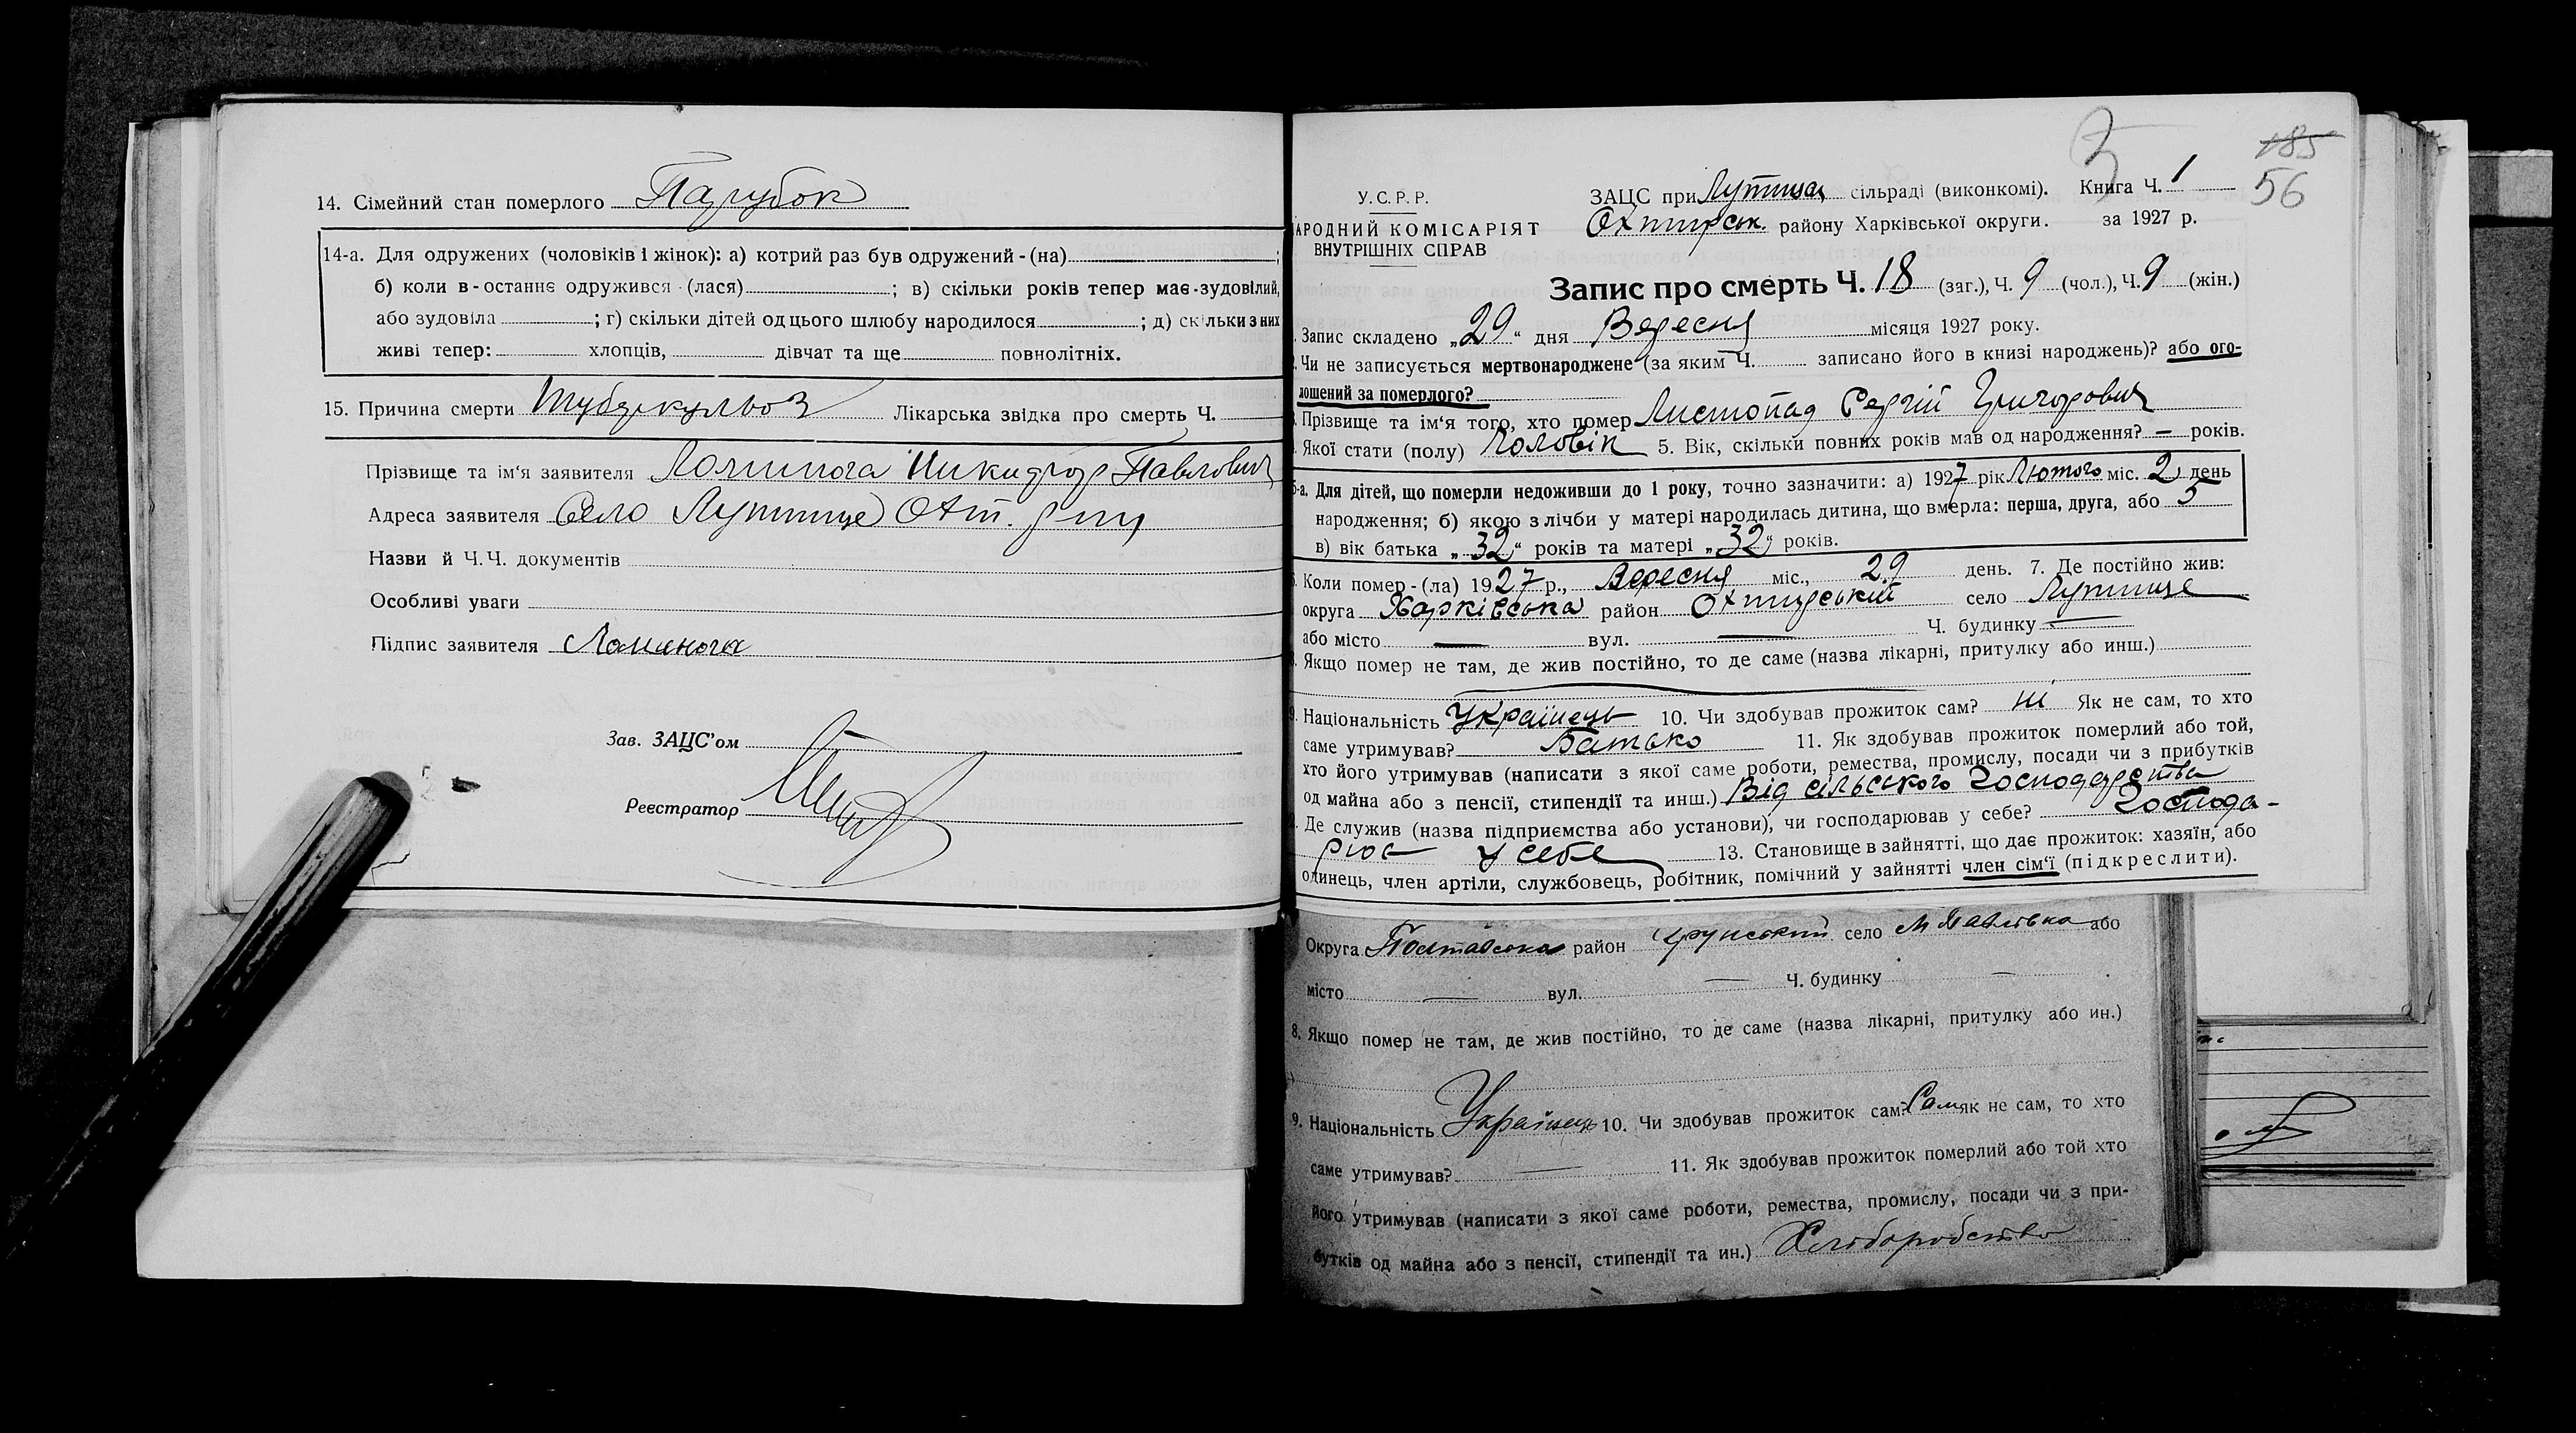 14. Сімейний стан померлого Парубок
14-а. Для одружених (чоловіків і жінок): а) котрий раз був одружений-(на) ;
б) коли в-останнє одружився (лася) ; в) скільки років тепер має-зудовілий,
або зудовіла ; г) скільки дітей од цього шлюбу народилося ; д) скільки з них
живі тепер: хлопців, дівчат та ще повнолітніх.
15. Причина смерти Туберкульоз Лікарська звідка про смерть Ч.
Прізвище та ім'я заявителя Никифор Павлович
Адреса заявителя Село Лутище Охт. р-ну
Назви й Ч.Ч. документів
Особливі уваги
Підпис заявителя
Зав. ЗАЦС'ом
Реєстратор
3
185
56
У.С.Р.Р.
НАРОДНИЙ КОМІСАРІЯТ
ВНУТРІШНІХ СПРАВ
ЗАЦС при Лутищан сільраді (виконкомі). Книга Ч. 1
Охтирськ. району Харківської округи. за 1927 р.
Запис про смерть Ч. 18 (заг.), Ч. 9 (чол.), Ч. 9 (жін.)
Запис складено „29" дня Вересня місяця 1927 року.
Чи не записується мертвонароджене (за яким Ч. записано його в книзі народжень)? або ого-
лошений за померлого?
Прізвище та ім'я того, хто помер Листопад Сергій Григорович
Якої стати (полу) Чоловік 5. Вік, скільки повних років мав од народження? — років.
5-а. Для дітей, що померли недоживши до 1 року, точно зазначити: а) 1927 рік Лютого міс. 2 день
народження; б) якою з лічби у матері народилась дитина, що вмерла: перша, друга, або 5
в) вік батька „32" років та матері „32" років.
Коли помер-(ла) 1927 р., Вересня міс., 29 день. 7. Де постійно жив:
округа Харківська район Охтирський село Лутище
або місто — вул. — Ч. будинку —
Якщо помер не там, де жив постійно, то де саме (назва лікарні, притулку або инш.)
9. Національність Українець 10. Чи здобував прожиток сам? ні Як не сам, то хто
саме утримував? Батько 11. Як здобував прожиток померлий або той,
хто його утримував (написати з якої саме роботи, ремества, промислу, посади чи з прибутків
од майна або з пенсії, стипендії та инш.) Від сільського господарства
Де служив (назва підприємства або установи), чи господарював у себе? Господа-
рює у себе 13. Становище в зайнятті, що дає прожиток: хазяїн, або
одинець, член артіли, службовець, робітник, помічний у зайнятті член сім'ї (підкреслити).
Округа Полтавська район село М Павлівка або
місто — вул. — Ч. будинку —
8. Якщо помер не там, де жив постійно, то де саме (назва лікарні, притулку або ин.)
9. Національність Українець 10. Чи здобував прожиток сам? Сам як не сам, то хто
саме утримував? — 11. Як здобував прожиток померлий або той хто
його утримував (написати з якої саме роботи, ремества, промислу, посади чи з при-
бутків од майна або з пенсії, стипендії та ин.) Хліборобство